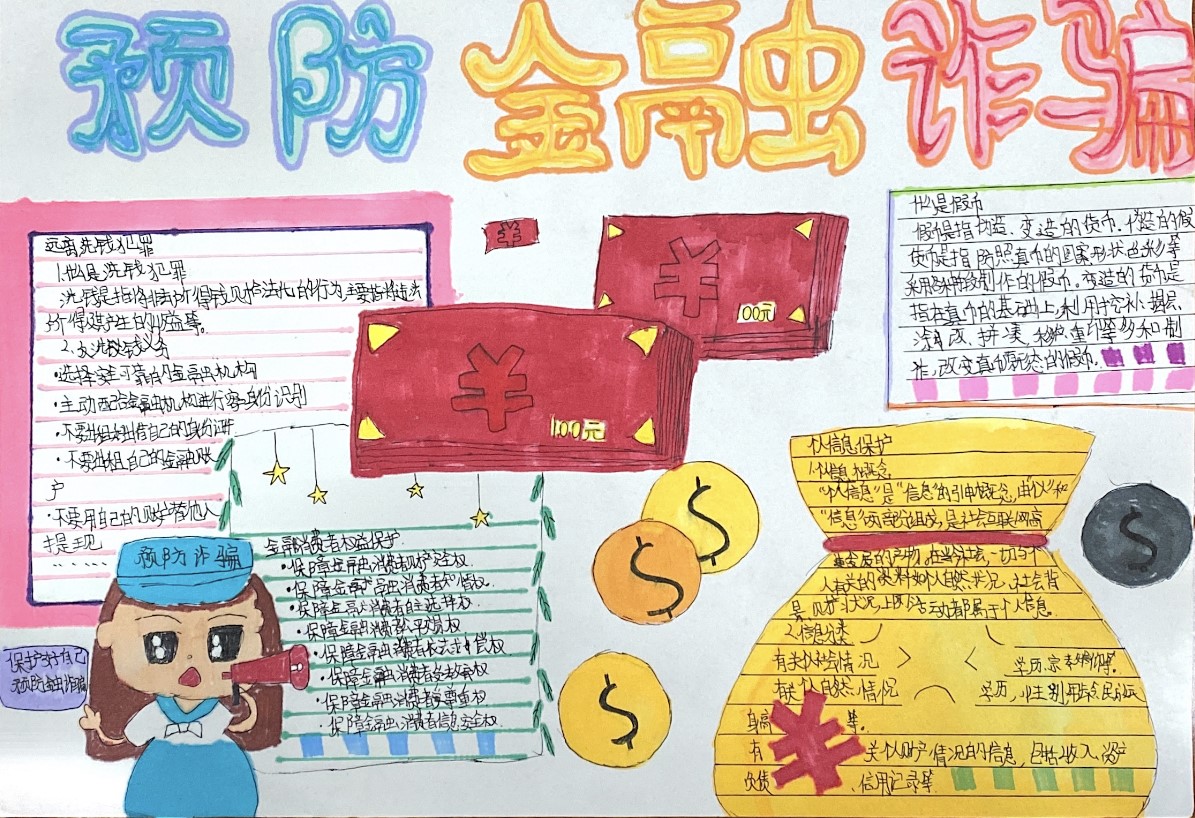 预防金融诈骗
远离洗钱犯罪
1.什么是洗钱犯罪
洗钱是指将非法所得钱财合法化的行为,主要指将违法
所得及其产生的收益等。
2.
·选择安全可靠的金融机构
·主动配合金融机构进行客户身份识别
·不要出租出借自己的身份证件
·不要出租自己的金融账
户
·不要用自己的账户替他人
提现
......
¥
¥
100元
¥
100元
什么是假币
假币是指伪造、变造的货币。伪造的假
货币是指仿照真币的图案形状色彩等
采用各种手段制作的假币。变造的货币是
指在真币的基础上,利用挖补、揭层、
涂改、拼凑、移位、重印等多种制
作,改变真币形态的假币。
金融消费者权益保护
·保障金融消费者财产安全权.
·保障金融消费者知情权.
·保障金融消费者自主选择权.
·保障金融消费者公平交易权
·保障金融消费者依法求偿权
·保障金融消费者受教育权
·保障金融消费者受尊重权
·保障金融消费者信息安全权
预防诈骗
保护好自己
预防金融诈骗
$
$
$
$
个人信息保护
1.个人信息概念
"个人信息"是"信息"的引申概念,由"个人"和
"信息"两部分组成,是社会互联网高
速发展的产物,在当今社会,一切与个
人有关的资料如个人自然状况、社会背
景、财产状况、上网活动都属于个人信息。
2.信息分类
有关个人社会情况
学历、宗
有关个人自然情况
身高 等。
有 关个人财产情况的信息,包括收入、资产
负债 、信用记录等
¥